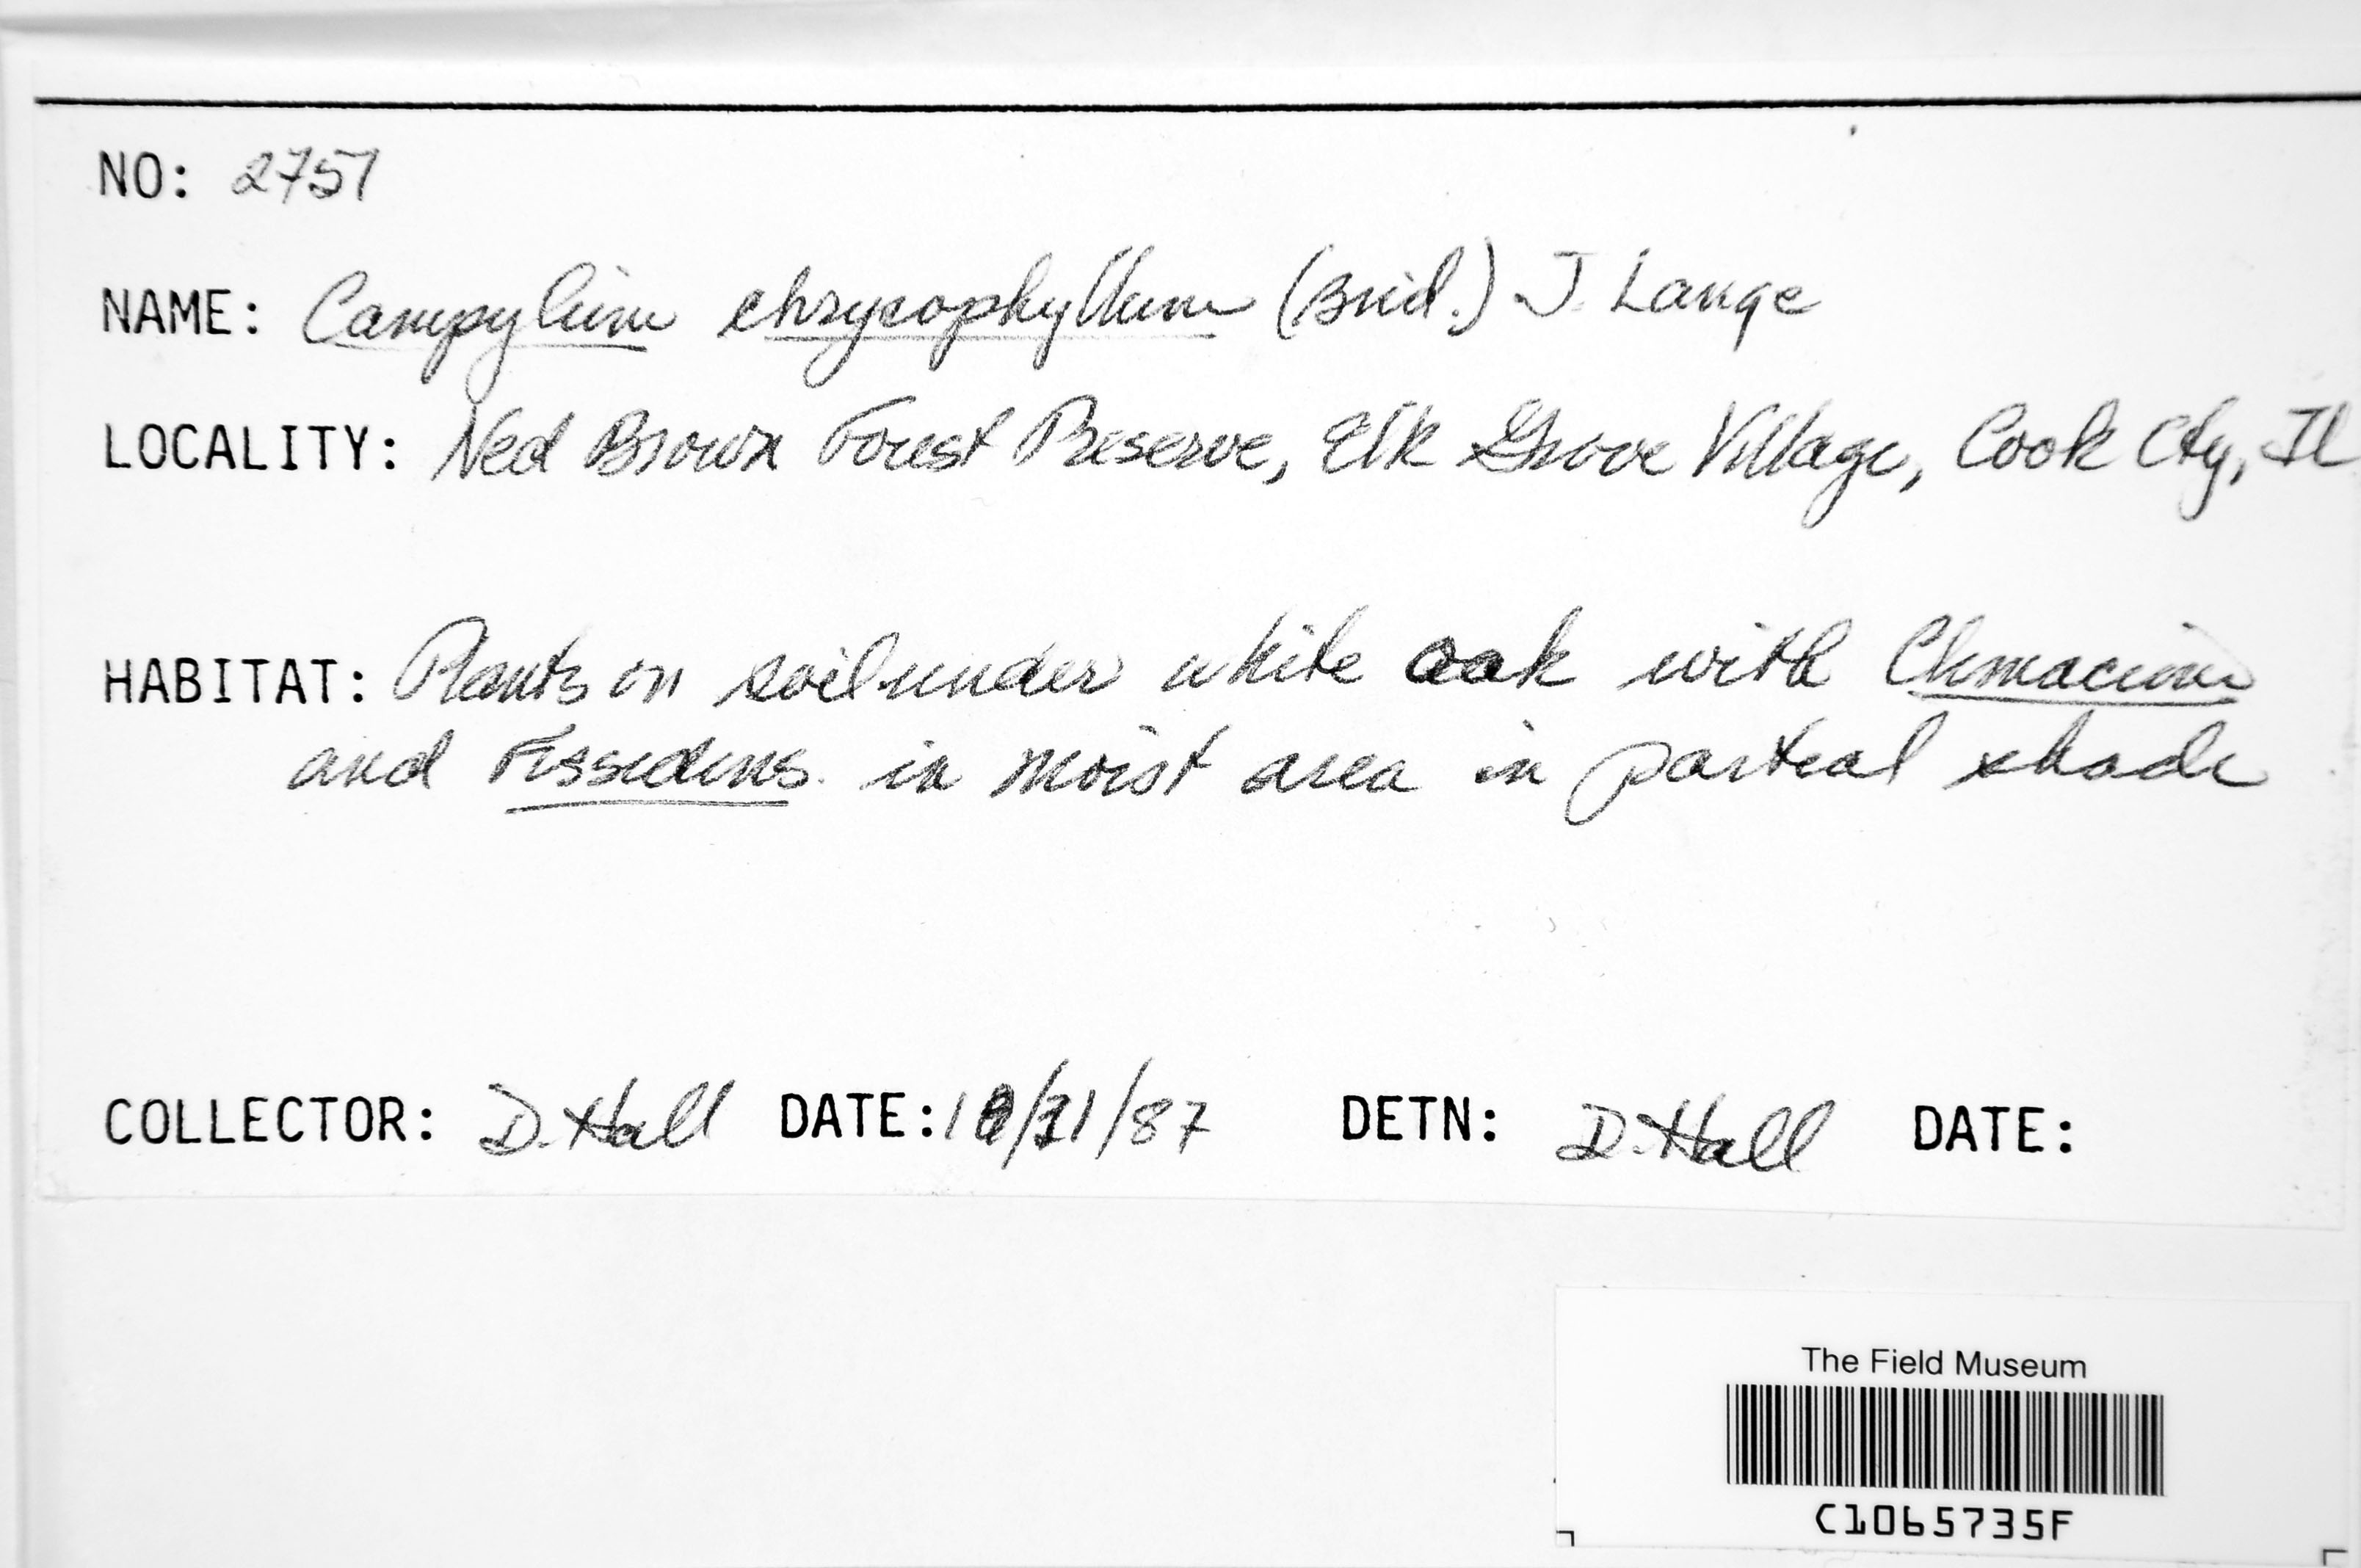 NO: 2757
NAME: Campylium chrysophyllum (Brid.) J. Lange
LOCALITY: Ned Brown Forest Preserve, Elk Grove Village, Cook Cty, IL
HABITAT: Plants on soil under white oak with Climacium
and Fissidens in moist area in partial shade
COLLECTOR: D. Hall DATE: DETN: D. Hall DATE:
The Field Museum
C1065735F